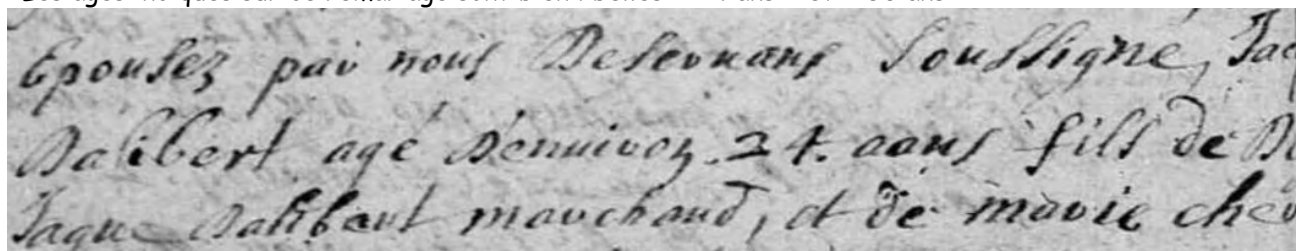 Epousez par nous Deservans Soussigné, Jaq
Dalibert agé D'enuiron 24. aans fils de
Jaque Dalibert marchand, et de marie chev